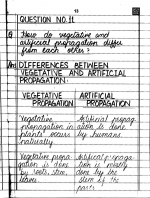 13
QUESTION NO. 11
Q How do vegetative and
artificial propagation differ
from each other?
Ans DIFFERENCES BETWEEN
VEGETATIVE AND ARTIFICIAL
PROPAGATION:
VEGETATIVE PROPAGATION
ARTIFICIAL PROPAGATION
Vegetative propagation in plants occurs naturally
Artificial propagation is done by humans.
Vegetative propagation is done by roots, stem, leaves
Artificial propagation is mostly done by the stem of the